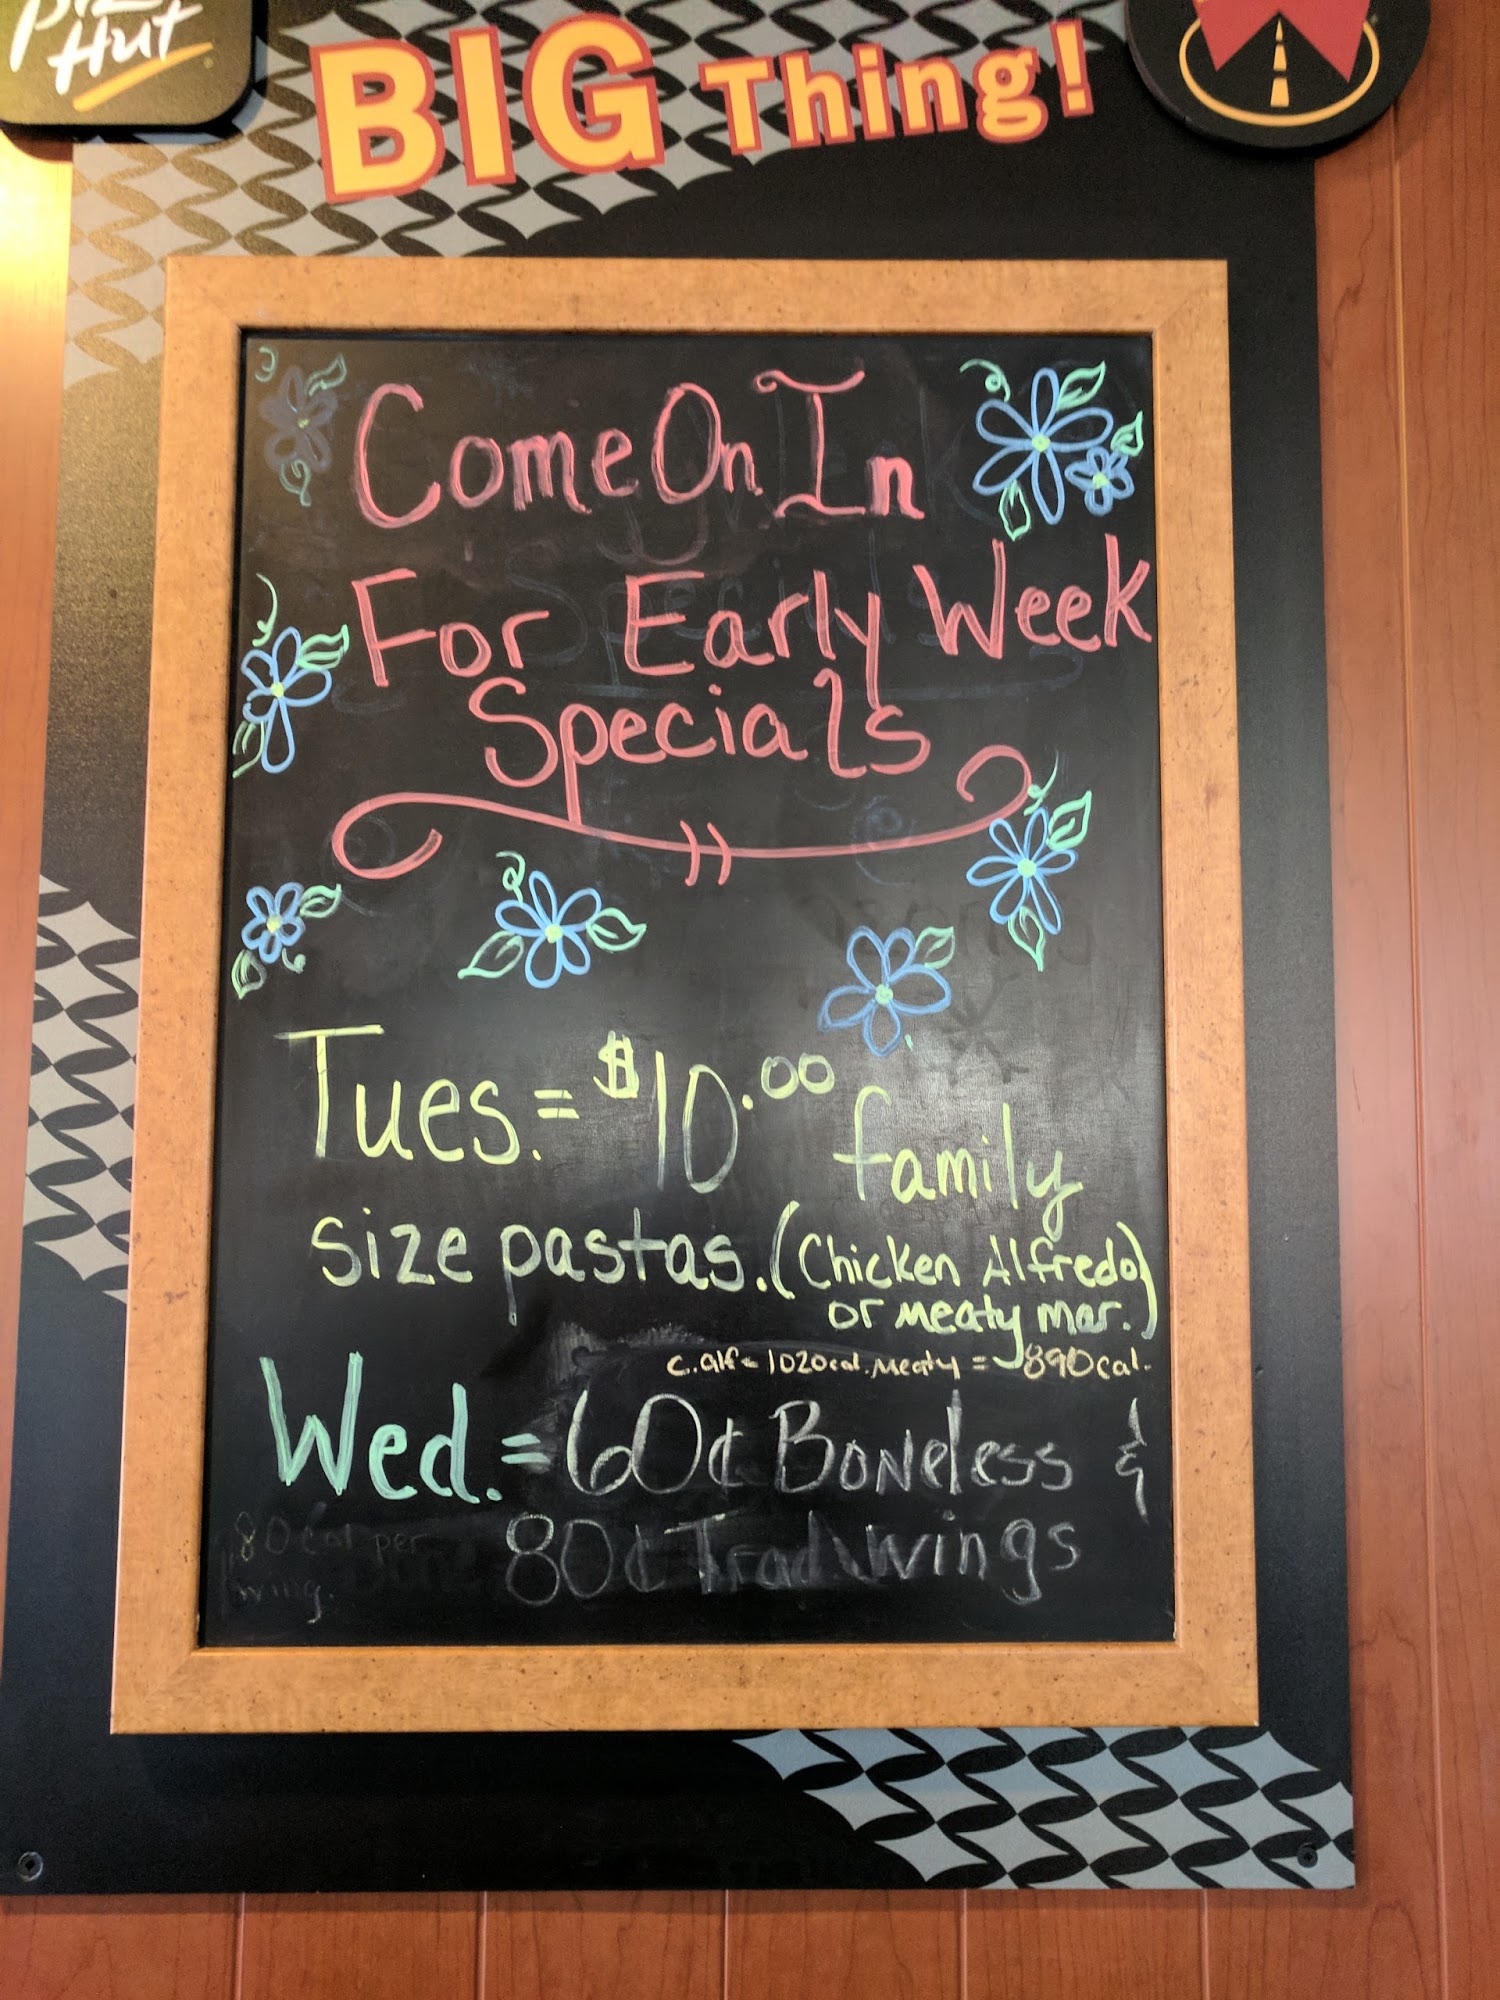 Hut
BIG Thing!
Come On In
For Early Week
Specials
Tues. = $10.00 family
size pastas. (Chicken Alfredo
or Meaty mar.)
C. Alf = 1020cal. Meaty = 890cal.
Wed. = 60¢ Boneless &
80¢ Trad. wings
80 cal per
wing.